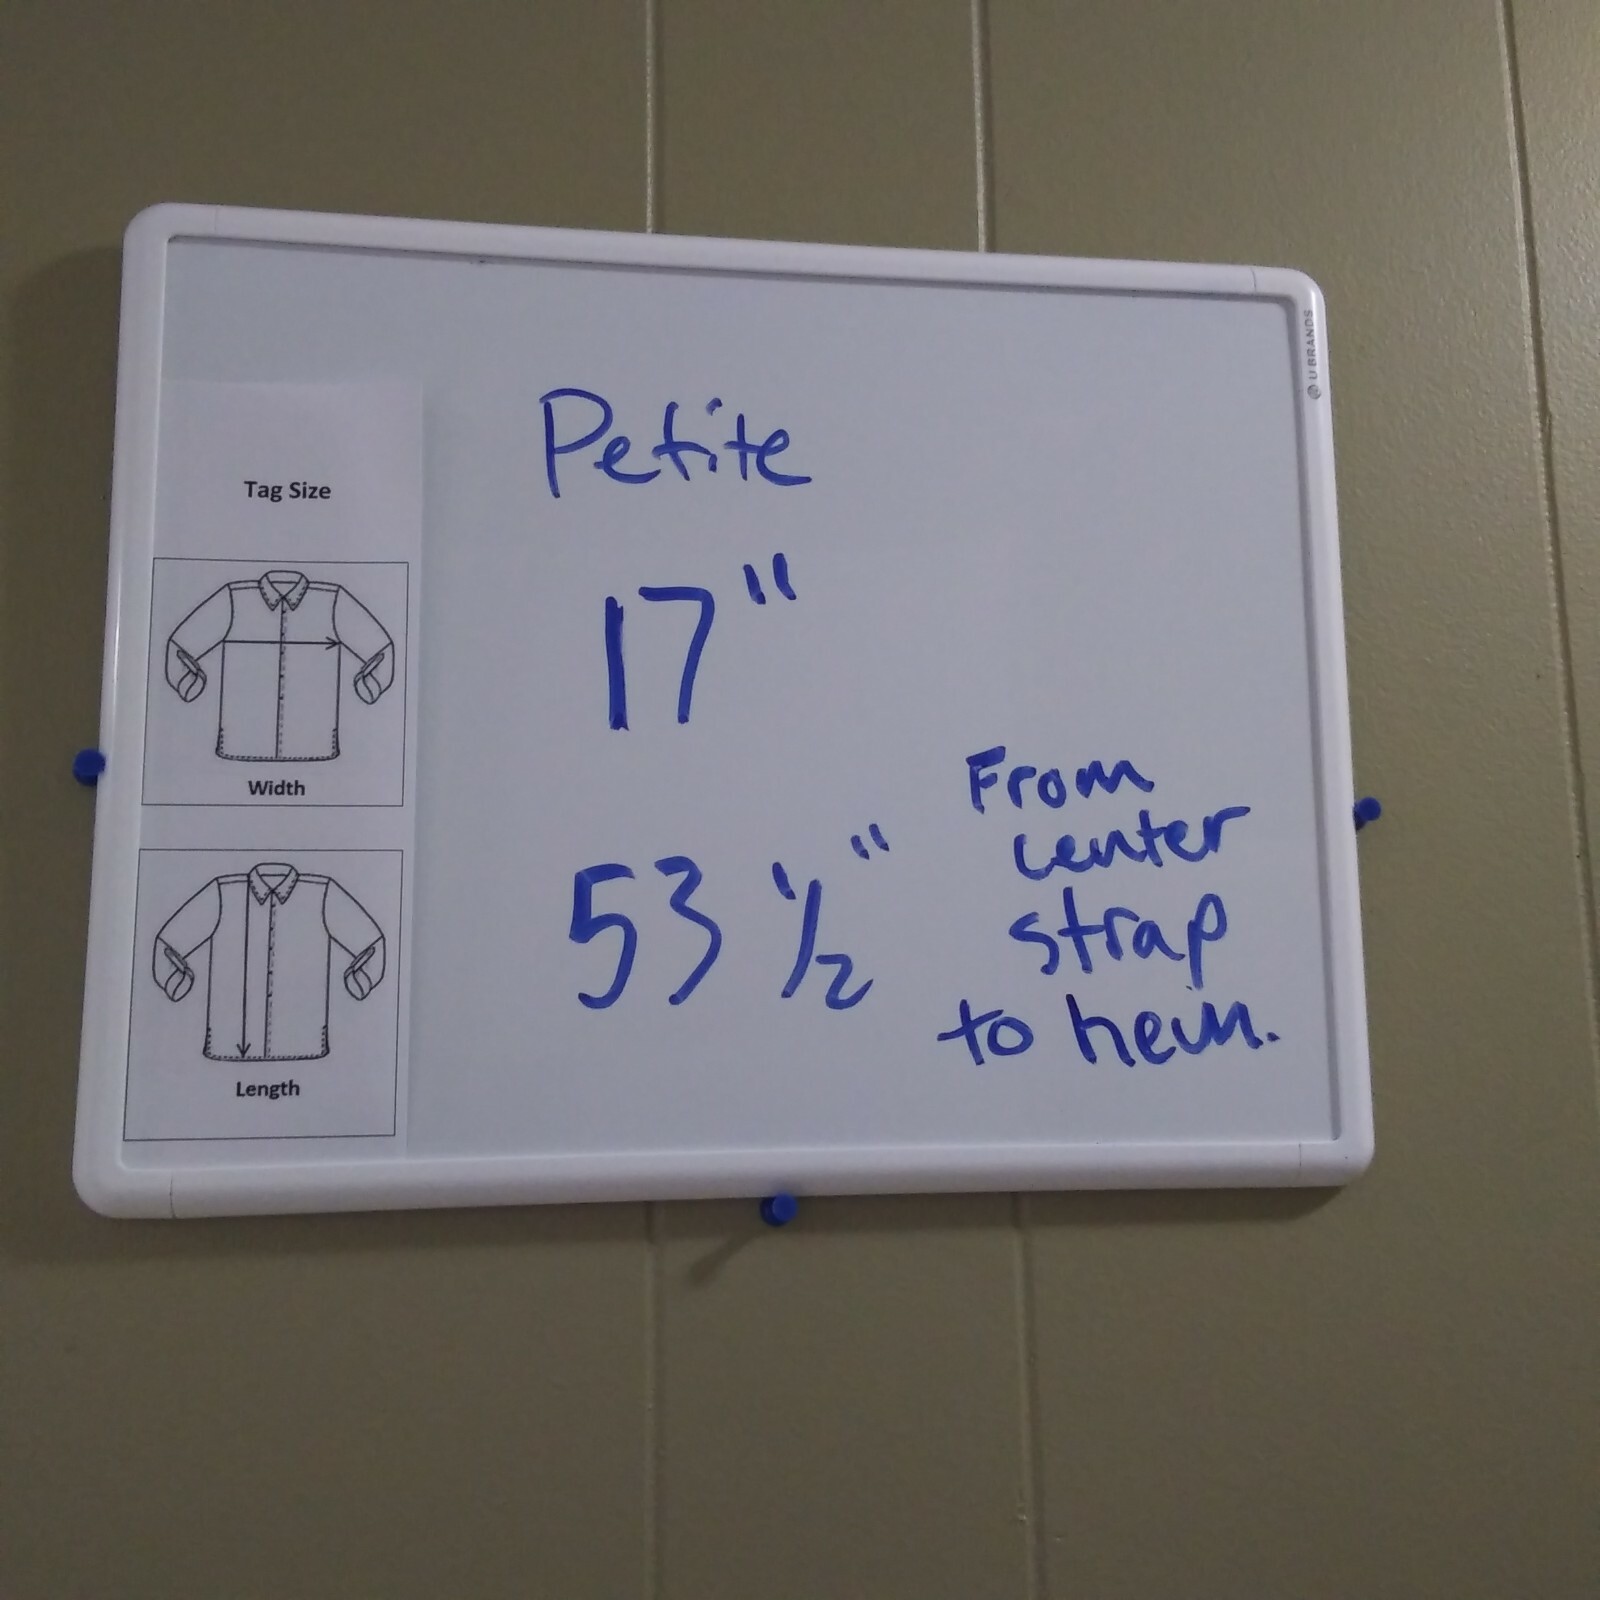 U BRANDS
Tag Size
Petite
Width
17"
Length
53 1/2"
From
center
strap
to heim.